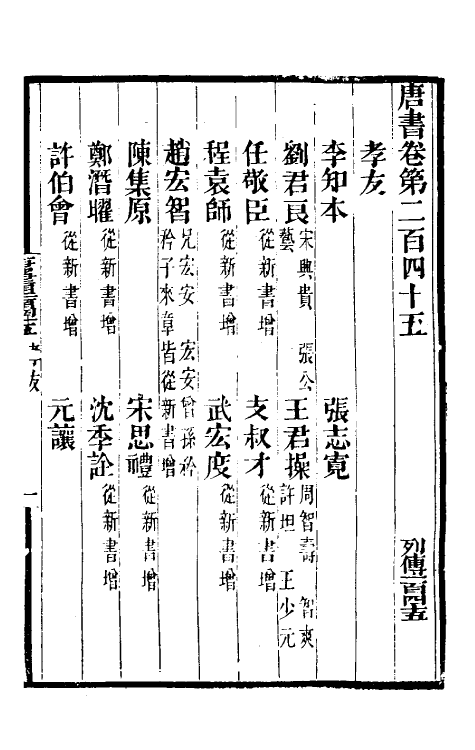 唐書卷第二百四十五 列傳一百四十五
孝友
李知本 張志寬
劉君良 宋興貴 張公藝 王君操 周智壽 智爽 許坦 王少元
任敬臣 從新書增 支叔才 從新書增
程袁師 從新書增 武宏度 從新書增
趙宏智 兄宏安 宏安曾孫矜 矜子來章皆從新書增
陳集原 宋思禮 從新書增
鄭潛曜 從新書增 沈季詮 從新書增
許伯會 從新書增 元讓
孝友 一